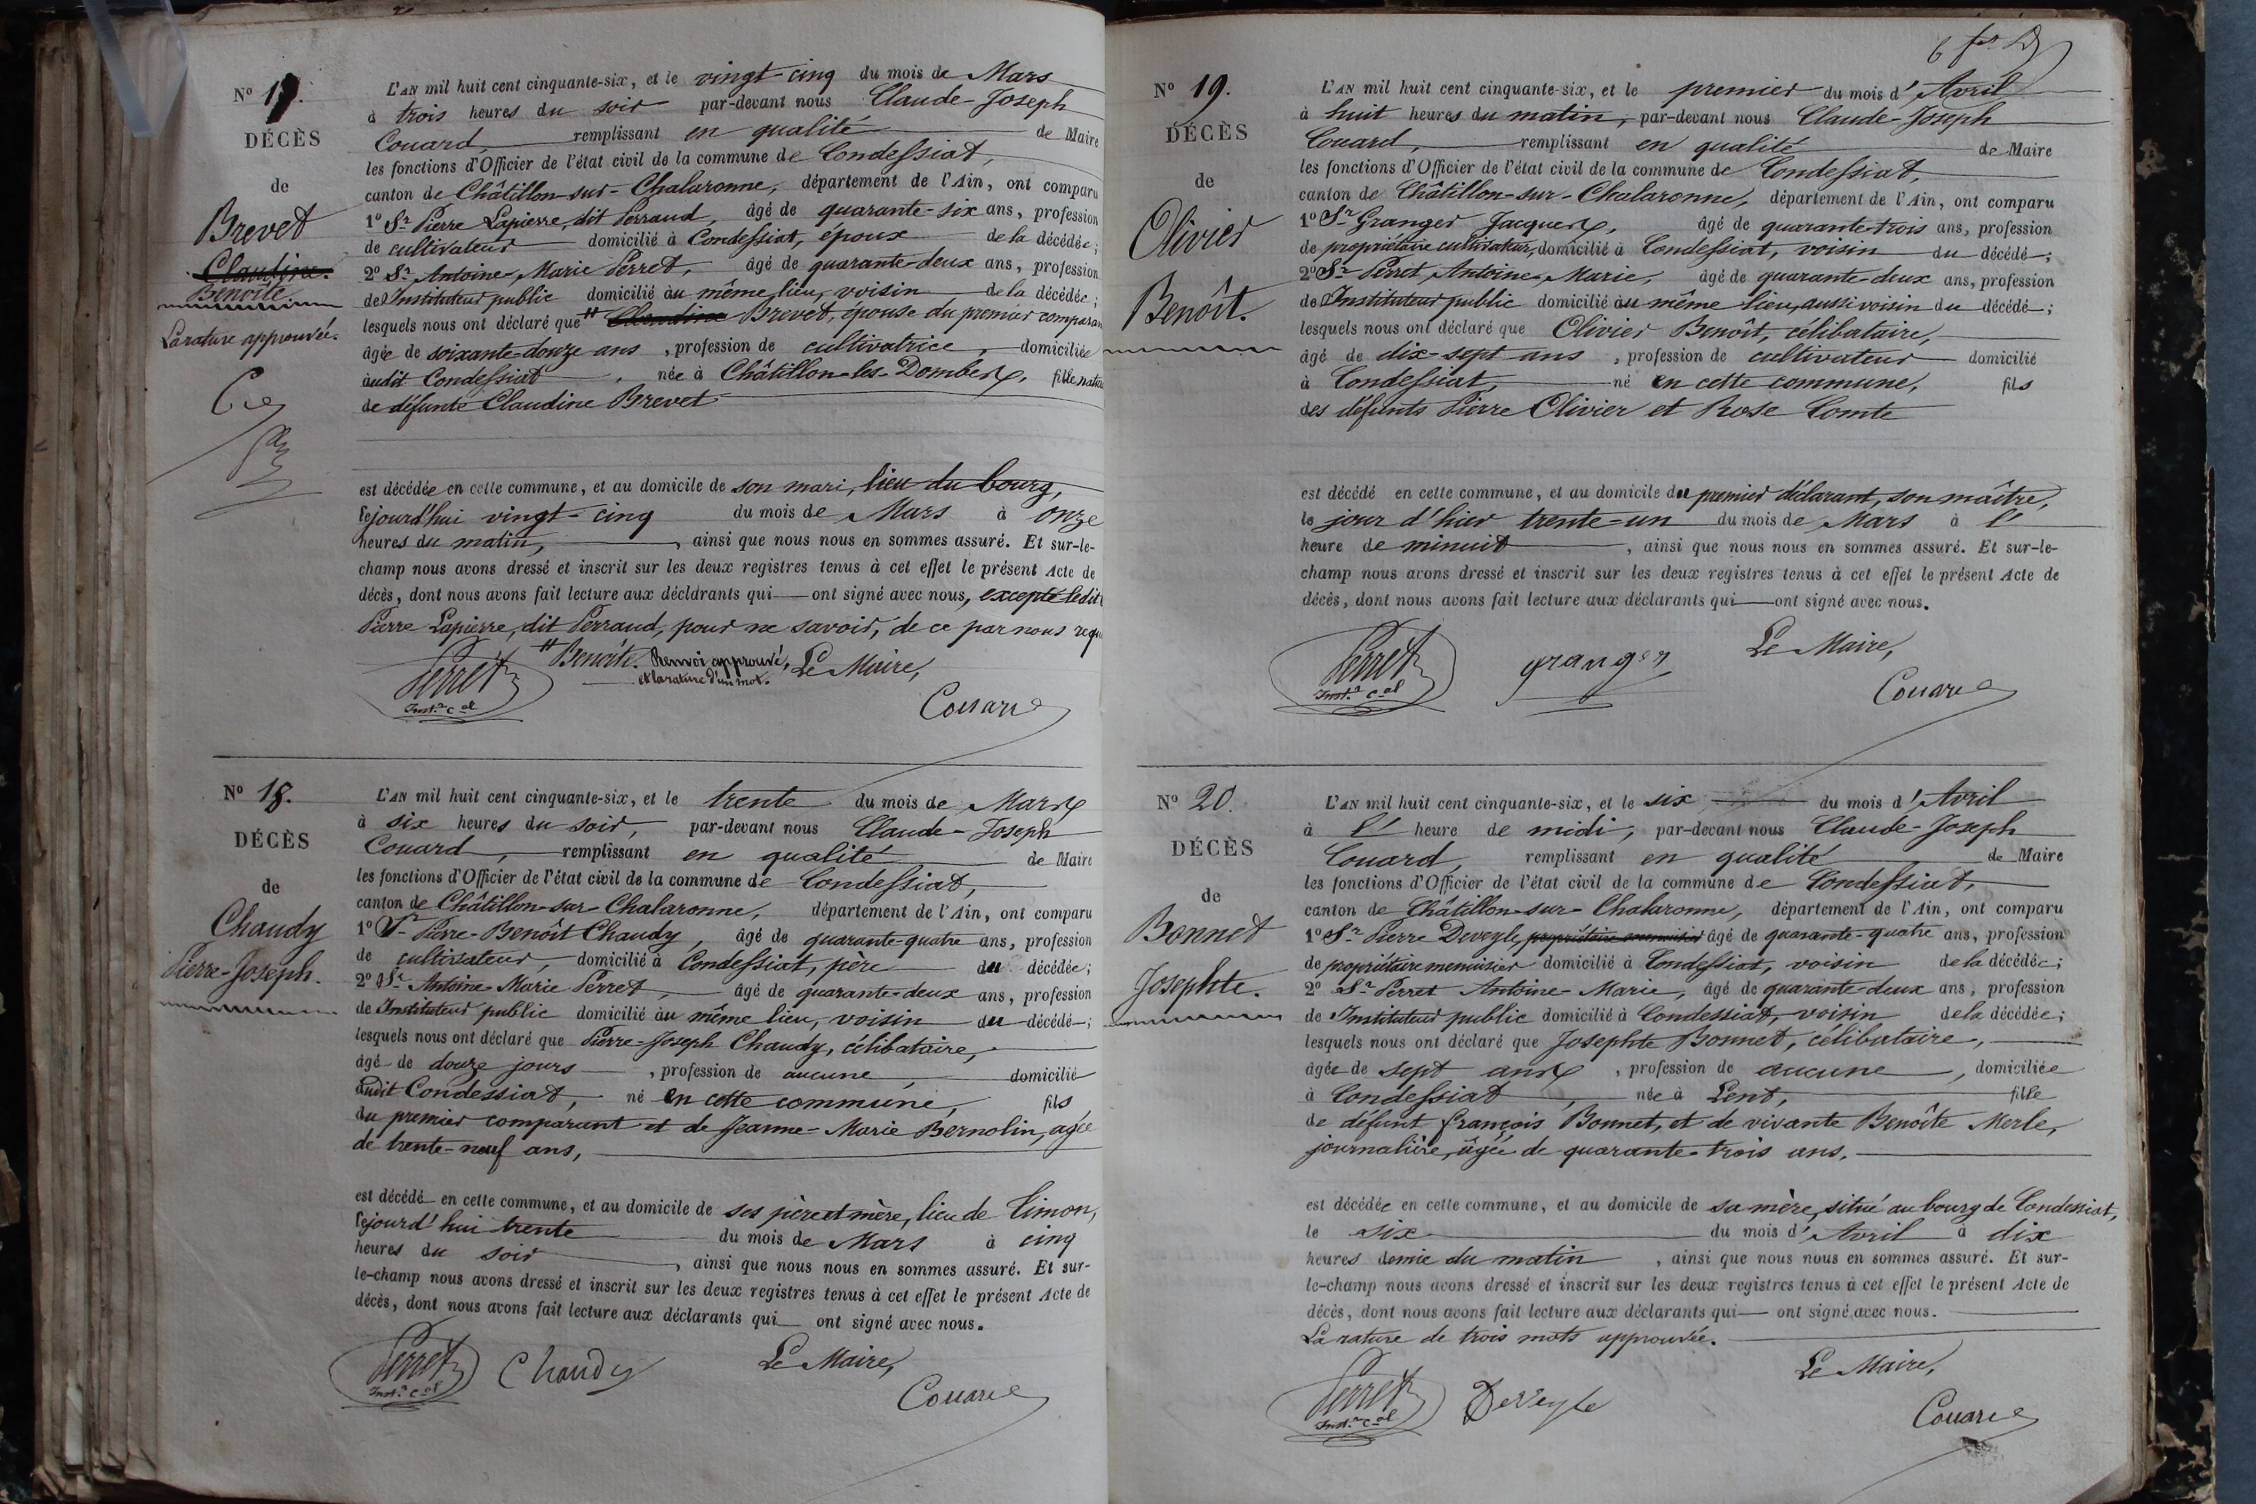 Nº 17.
DÉCÈS
de
Brevet
Claudine.
Benoîte
La rature approuvée.
L'AN mil huit cent cinquante-six, et le vingt-cinq du mois de Mars
à trois heures du soir par-devant nous Claude-Joseph
Couard, remplissant en qualité de Maire
les fonctions d'Officier de l'état civil de la commune de Condessiat,
canton de Châtillon-sur-Chalaronne, département de l'Ain, ont comparu
1º Sr Pierre Lapierre, dit Perraud, âgé de quarante-six ans, profession
de cultivateur domicilié à Condessiat, époux de la décédée;
2º Sr Antoine-Marie Perret, âgé de quarante-deux ans, profession
de Instituteur public domicilié au même lieu, voisin de la décédée;
lesquels nous ont déclaré que " Claudine Brevet, épouse du premier comparan
âgée de soixante-douze ans, profession de cultivatrice, domiciliée
audit Condessiat, née à Châtillon-les-Dombes, fille
de défunte Claudine Brevet
est décédée en cette commune, et au domicile de son mari, lieu du bourg,
cejourd'hui vingt-cinq du mois de Mars à onze
heures du matin, ainsi que nous nous en sommes assuré. Et sur-le-
champ nous avons dressé et inscrit sur les deux registres tenus à cet effet le présent Acte de
décès, dont nous avons fait lecture aux déclarants qui ont signé avec nous, excepté ledit
Pierre Lapierre, dit Perraud, pour ne savoir, de ce par nous requ
" Benoîte. Renvoi approuvé, Le Maire,
et la rature d'un mot.
Perret
Inst.r c.al
Couard
Nº 18.
DÉCÈS
de
Chaudy
Pierre-Joseph.
L'AN mil huit cent cinquante-six, et le trente du mois de Mars
à six heures du soir, par-devant nous Claude-Joseph
Couard, remplissant en qualité de Maire
les fonctions d'Officier de l'état civil de la commune de Condessiat,
canton de Châtillon-sur-Chalaronne, département de l'Ain, ont comparu
1º Sr Pierre-Benoît Chaudy, âgé de quarante-quatre ans, profession
de cultivateur, domicilié à Condessiat, père du décédée;
2º Sr Antoine-Marie Perret, âgé de quarante-deux ans, profession
de Instituteur public domicilié au même lieu, voisin du décédé;
lesquels nous ont déclaré que Pierre-Joseph Chaudy, célibataire,
âgé de douze jours, profession de aucune, domicilié
audit Condessiat, né en cette commune, fils
du premier comparant et de Jeanne-Marie Bernolin, agée
de trente-neuf ans,
est décédé en cette commune, et au domicile de ses père et mère, lieu de Limon,
cejourd'hui trente du mois de Mars à cinq
heures du soir, ainsi que nous nous en sommes assuré. Et sur-
le-champ nous avons dressé et inscrit sur les deux registres tenus à cet effet le présent Acte de
décès, dont nous avons fait lecture aux déclarants qui ont signé avec nous.
Perret Chaudy Le Maire,
Inst.r c.al
Couard
Nº 19.
DÉCÈS
de
Olivier
Benoît.
L'AN mil huit cent cinquante-six, et le premier du mois d'Avril
à huit heures du matin, par-devant nous Claude-Joseph
Couard, remplissant en qualité de Maire
les fonctions d'Officier de l'état civil de la commune de Condessiat,
canton de Châtillon-sur-Chalaronne, département de l'Ain, ont comparu
1º Sr Granger Jacques, âgé de quarante-trois ans, profession
de propriétaire cultivateur, domicilié à Condessiat, voisin du décédé;
2º Sr Perret, Antoine-Marie, âgé de quarante-deux ans, profession
de Instituteur public domicilié au même lieu, aussi voisin du décédé;
lesquels nous ont déclaré que Olivier Benoît, célibataire,
âgé de dix-sept ans, profession de cultivateur domicilié
à Condessiat, né en cette commune, fils
des défunts Pierre Olivier et Rose Comte
est décédé en cette commune, et au domicile du premier déclarant, son maître,
le jour d'hier trente-un du mois de Mars à l'
heure de minuit, ainsi que nous nous en sommes assuré. Et sur-le-
champ nous avons dressé et inscrit sur les deux registres tenus à cet effet le présent Acte de
décès, dont nous avons fait lecture aux déclarants qui ont signé avec nous.
Perret granger Le Maire,
Inst.r c.al
Couard
Nº 20.
DÉCÈS
de
Bonnet
Josephte.
L'AN mil huit cent cinquante-six, et le six du mois d'Avril
à l' heure de midi, par-devant nous Claude-Joseph
Couard, remplissant en qualité de Maire
les fonctions d'Officier de l'état civil de la commune de Condessiat,
canton de Châtillon-sur-Chalaronne, département de l'Ain, ont comparu
1º Sr Pierre Deveyle, propriétaire menuisier âgé de quarante-quatre ans, profession
de propriétaire menuisier domicilié à Condessiat, voisin de la décédée;
2º Sr Perret Antoine-Marie, âgé de quarante-deux ans, profession
de Instituteur public domicilié à Condessiat, voisin de la décédée;
lesquels nous ont déclaré que Josephte Bonnet, célibataire,
âgée de sept ans, profession de aucune, domiciliée
à Condessiat, née à Lent, fille
de défunt François Bonnet, et de vivante Benoîte Merle,
journalière, âgée de quarante-trois ans.
est décédée en cette commune, et au domicile de sa mère, situé au bourg de Condessiat,
le six du mois d'Avril à dix
heures demie du matin, ainsi que nous nous en sommes assuré. Et sur-
le-champ nous avons dressé et inscrit sur les deux registres tenus à cet effet le présent Acte de
décès, dont nous avons fait lecture aux déclarants qui ont signé avec nous.
La rature de trois mots approuvée.
Perret DeVeyle Le Maire,
Inst.r c.al
Couard